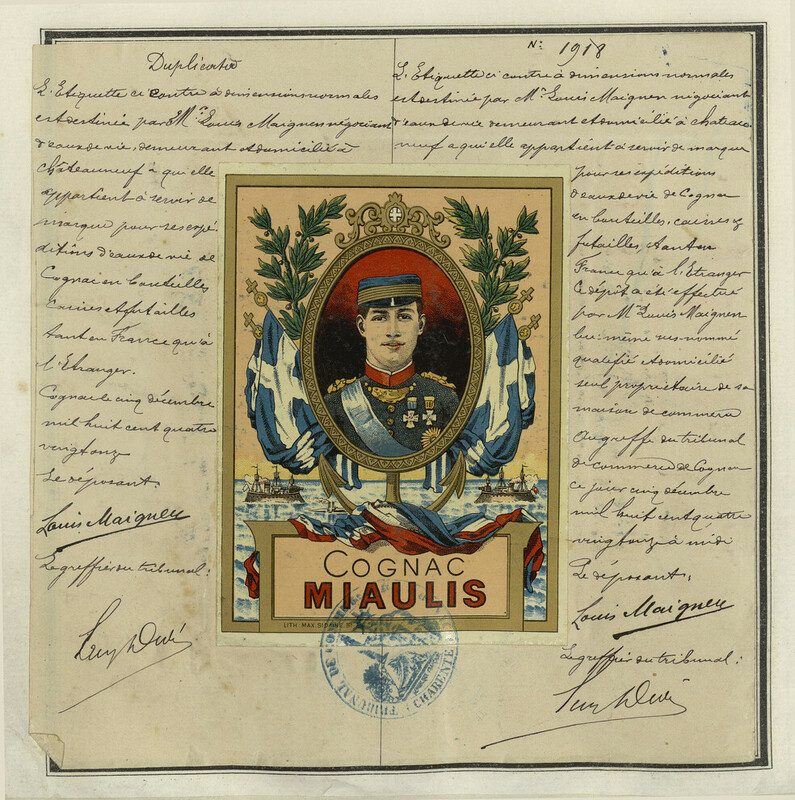 Duplicata
L'Etiquette ci contre à dimensions normales
est destinée par Mr. Louis Maignen négociant
d'eaux de vie, demeurant et domicilié à
châteauneuf à qui elle
appartient à servir de
marque pour ses expé
ditions d'eaux de vie de
Cognac en bouteilles
caisses et futailles
tant en France qu'à
l'Etranger.
Cognac le cinq décembre
mil huit cent quatre
vingt onze
Le déposant.
Louis Maignen
Le greffier du tribunal:
No: 1918
L'Etiquette ci contre à dimensions normales
est destinée par Mr. Louis Maignen négociant
d'eaux de vie demeurant et domicilié à chateau
neuf a qui elle appartient à servir de marque
pour ses expéditions
d'eaux de vie de Cognac
en bouteilles, caisses et
futailles, tant en
France qu'à l'Etranger
Ce dépôt a été effectué
par Mr. Louis Maignen
lui-même sus-nommé
qualifié et domicilié
seul propriétaire de sa
maison de commerce
Au greffe du tribunal
de commerce de Cognac
ce jour cinq décembre
mil huit cent quatre
vingt onze à midi
Le déposant,
Louis Maignen
Le greffier du tribunal:
COGNAC
MIAULIS
LITH. MAX
TRIBUNAL DE
CHARENTE